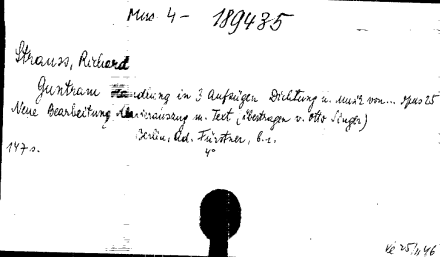 Mus. 4 - 189435
Strauss, Richard
Guntram Handlung in 3 Aufzügen Dichtung u. Musik von... opus 25
Neue Bearbeitung Klavierauszug m. Text (übertragen v. Otto Singer)
Berlin, Ad. Fürstner, b.r.
147 s. 4°
25/II 46